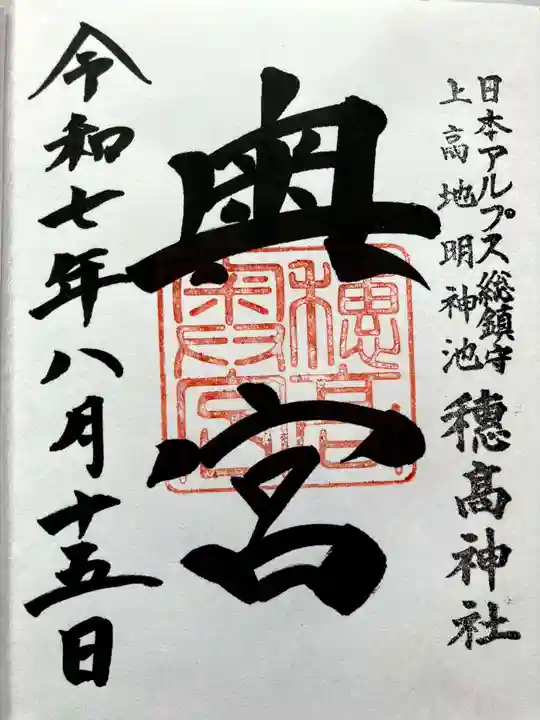 日本アルプス総鎮守
上高地明神池
穂高神社
奥宮
穂高
奥宮
令和七年八月十五日